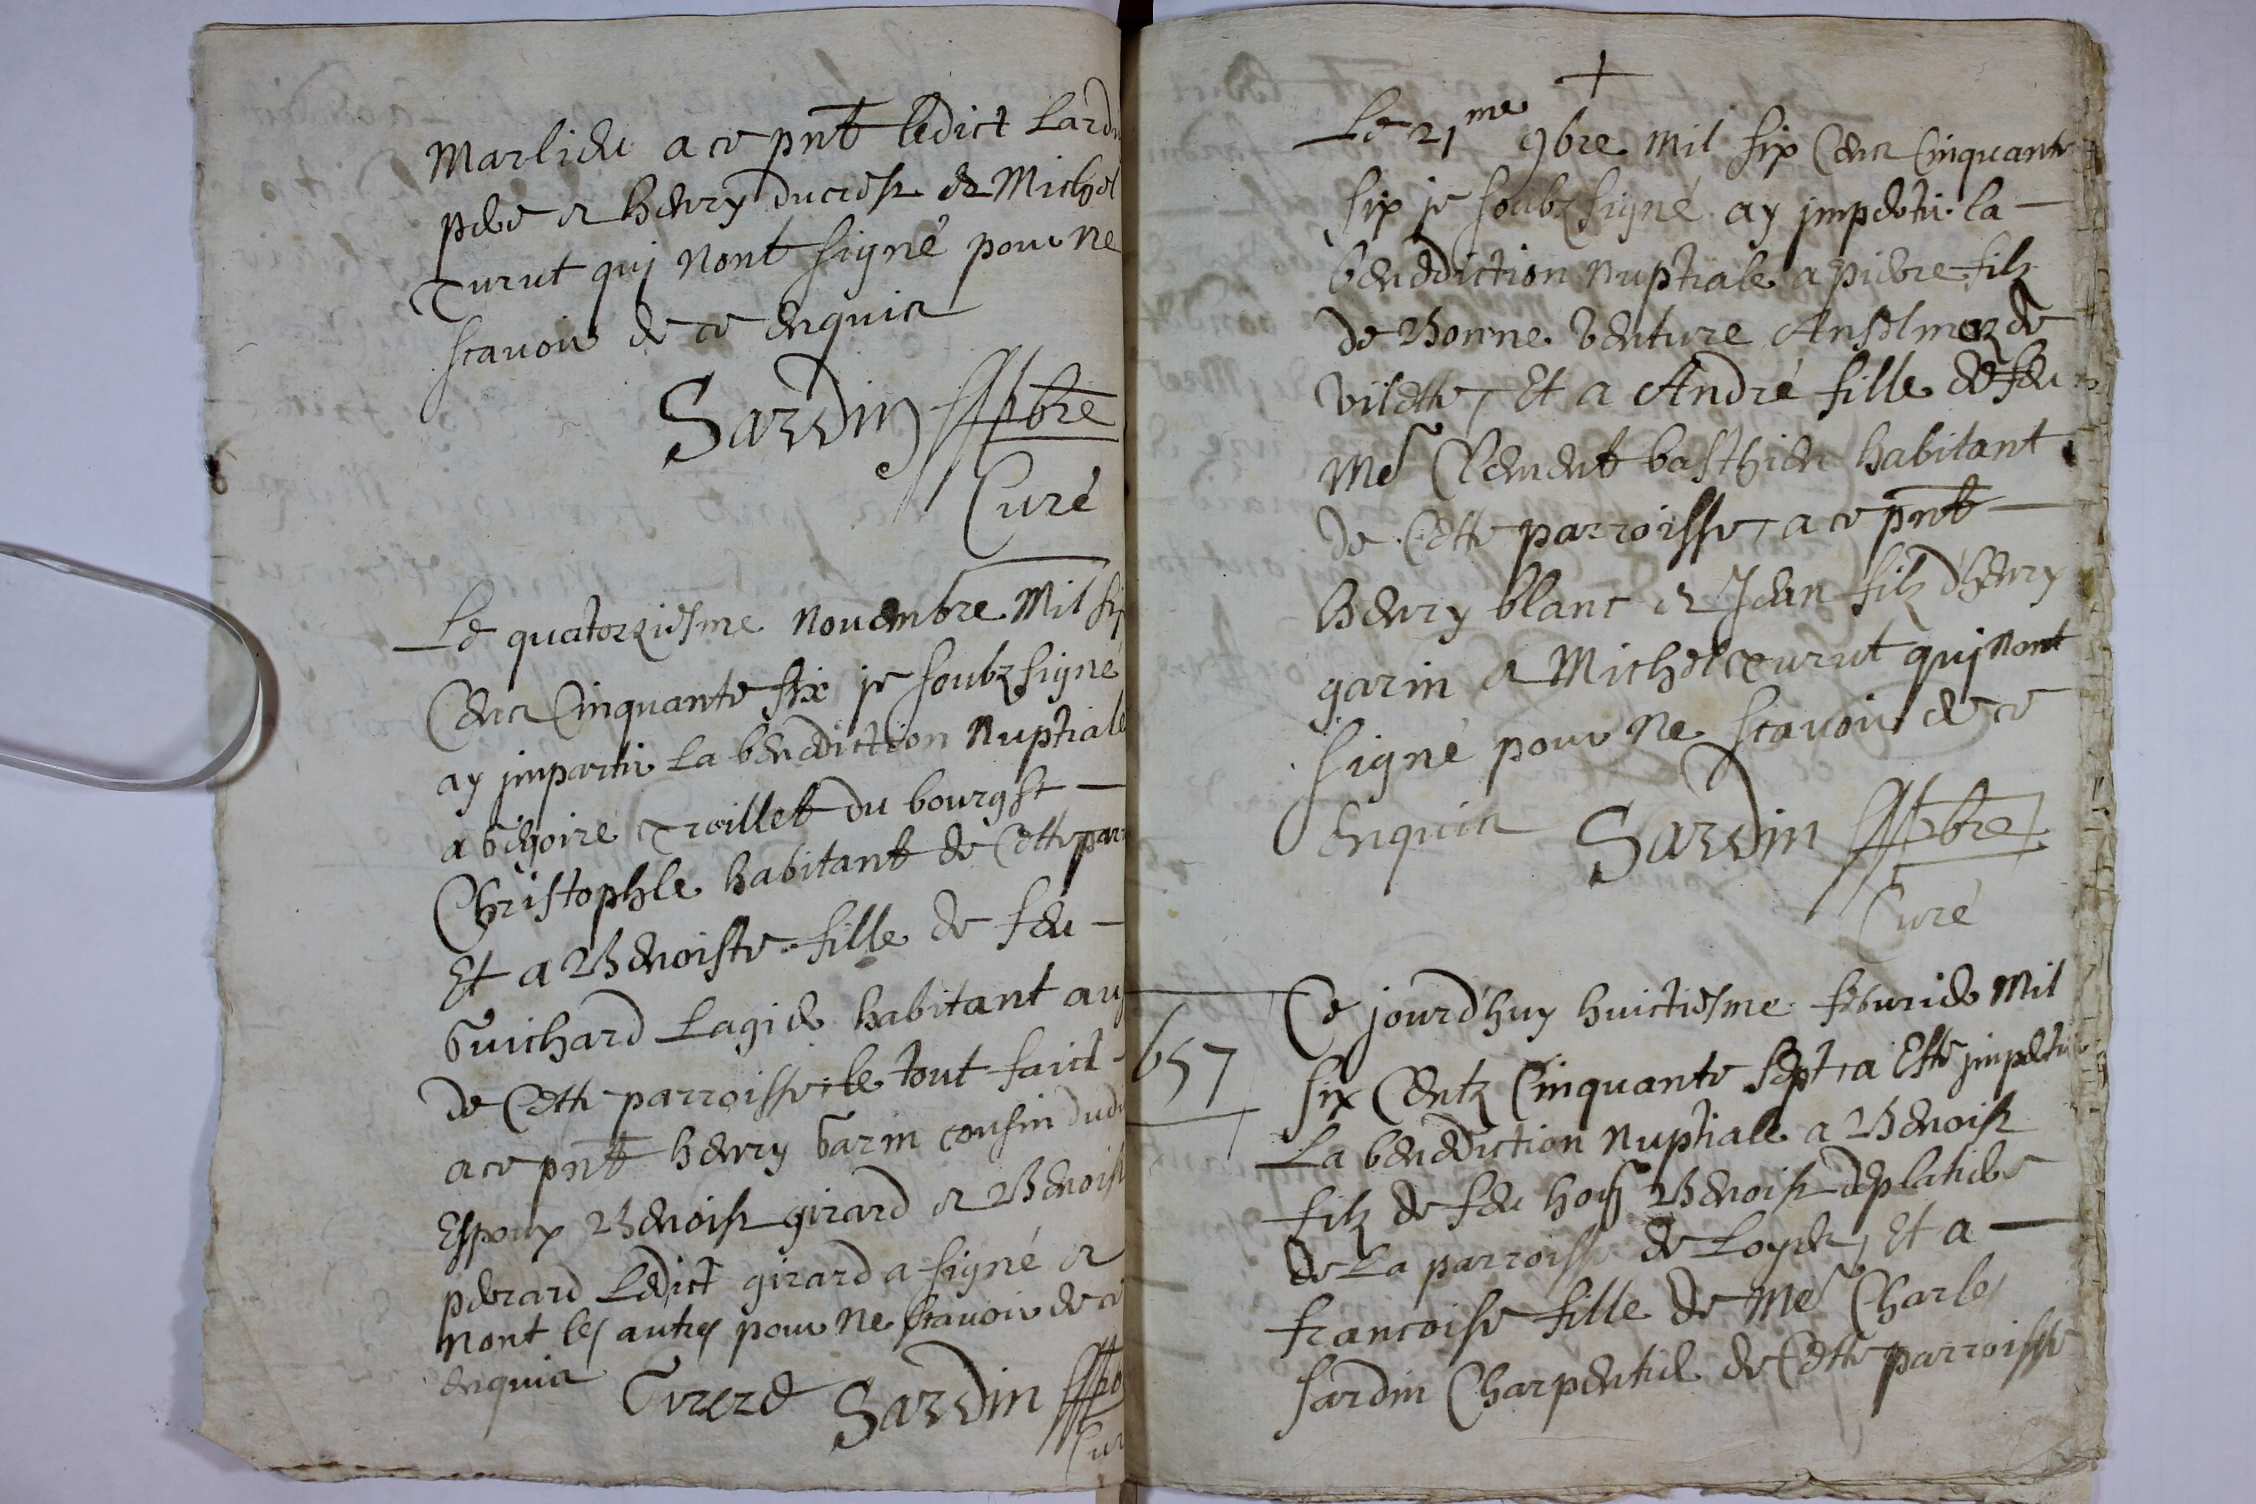 Marlieu a ce pnt ledict Lard
pere et henry ducrest et Michel
Turut qui nont signé pour ne
scavoir de ce enquis
Sardin pbre
Curé
Le quatorziesme Novembre Mil six
Cens Cinquante six je soubzsigné
ay imparti La benediction Nuptiale
a Gregoire Troillet du bourg St
Christophle habitant de Cette parr
Et a Benoiste fille de feu
Guichard Lagier habitant au
de Cette parroisse, le tout faict
a ce pnt henry Garin cousin dud
Espoux Benoist girard et Benoist
perrard Ledict girard a signé et
Nont les autres pour Ne scavoir de ce
enquis Girerd Sardin pb
Cur
+
Le 21me 9bre Mil six Cens Cinquante
six je soubzsigné ay imperti la
benediction Nuptiale a pierre filz
de Bonne venture Anselmoz de
vilette, Et a André fille de feu
Me Clement basthien habitant
de Cette parroisse, a ce pnt
henry blanc et Jean filz d'henry
garin et Michel Turut qui Nont
signé pour Ne scavoir de ce
enquis Sardin pbre
Curé
657
Ce jourd'huy huictiesme febvrier Mil
six Centz Cinquante sept, a Esté imperti
La benediction Nuptiale a Benoist
filz de feu hon Benoist deplatiere
de La parroisse de Loyes, Et a
francoise fille de Me Charles
Sardin Charpentier de Cette parroisse